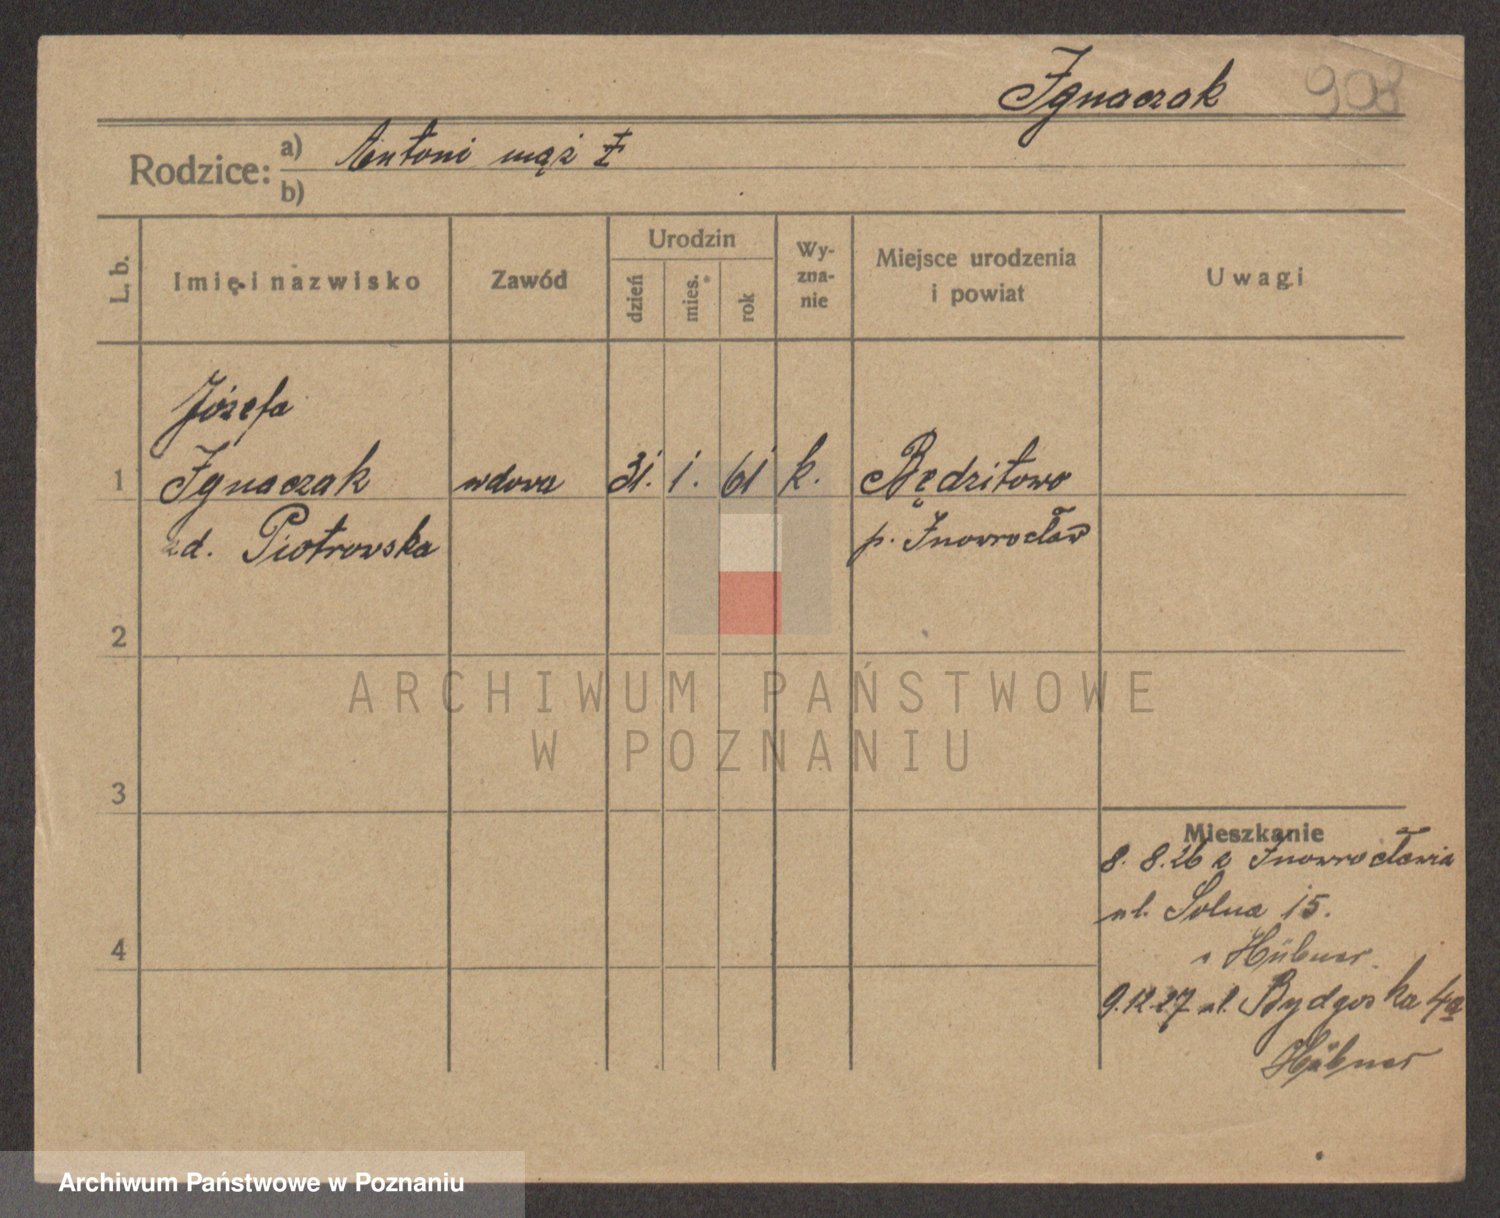 Ignaczak 908
Rodzice: a) Antoni mąż
b)
L. b. Imię i nazwisko Zawód Urodzin dzień mies. rok Wy-zna-nie Miejsce urodzenia i powiat Uwagi
Józefa
1 Ignaczak wdowa 31. 1. 61 k. Będzitowo
zd. Piotrowska p. Inowrocław
2
ARCHIWUM PAŃSTWOWE
W POZNANIU
3
Mieszkanie
8. 8.26 z Inowrocławia
ul. Solna 15.
Hübner
4
9.12.27 ul. Bydgoska 4a
Hübner
Archiwum Państwowe w Poznaniu